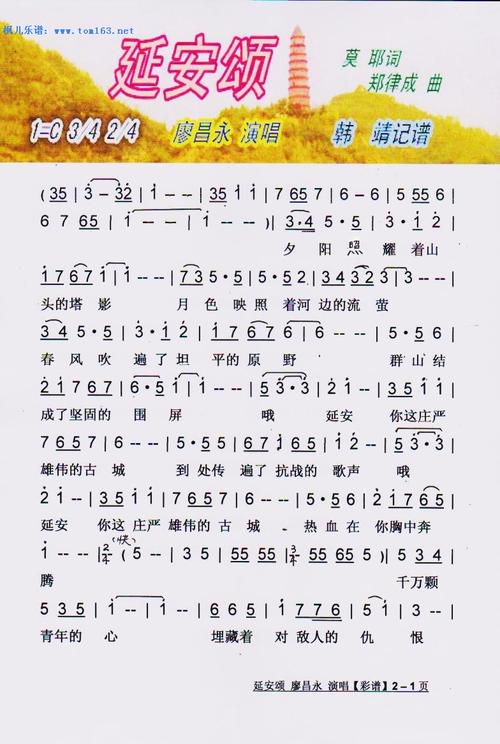 枫儿乐谱：www.tom163.net
延安颂
莫 耶词
郑律成 曲
1=C 3/4 2/4 廖昌永 演唱 韩 靖记谱
( 35 | 3 - 32 | 1 - - | 35 i i | 7 65 7 | 6 - 6 | 5 55 6 |
6 7 65 | i - - | i - - ) | 3·4 5·5 | 3·i 2 |
夕 阳 照 耀 着山
i 7 67 i | i - - | 7 35·5 | 3·5 i | 34 32 3 | 3 - - |
头的塔 影 月 色 映 照 着河 边的流 萤
3 4 5·5 | 3·i 2 | i 7 67 i | i - - | 5·5 6 |
春 风 吹 遍 了 坦 平 的 原 野 群 山 结
2 i 7 67 | 6·5 i | i - - | 2 3·3 | 2 i - | 2 i 7 6 |
成了坚固的 围 屏 哦 延安 你这庄严
7 65 6 | 5 - - | 6·5 56 | 5·5 i | 2 i 2 2 | 5 3·3 |
雄伟的古 城 到 处传 遍 了 抗战的 歌声 哦
2 i - | 2 i i 5 | 55 3 i | 2 - - | 3·i 2 | i 7 65 6 |
延安 你这 庄严 雄伟的 古 城 热 血 在 你 胸中 奔
i - - | 2/4 (快) ( 5 - | 35 i | 55 55 | 3/4 55 55 55 ) | i i 2 |
腾 千万颗
5 35 | i - - | 5 35 | i - - | i 7 76 | 5 3 5 |
青年的 心 埋藏着 对 敌人的 仇 恨
延安颂 廖昌永 演唱【彩谱】2－1页